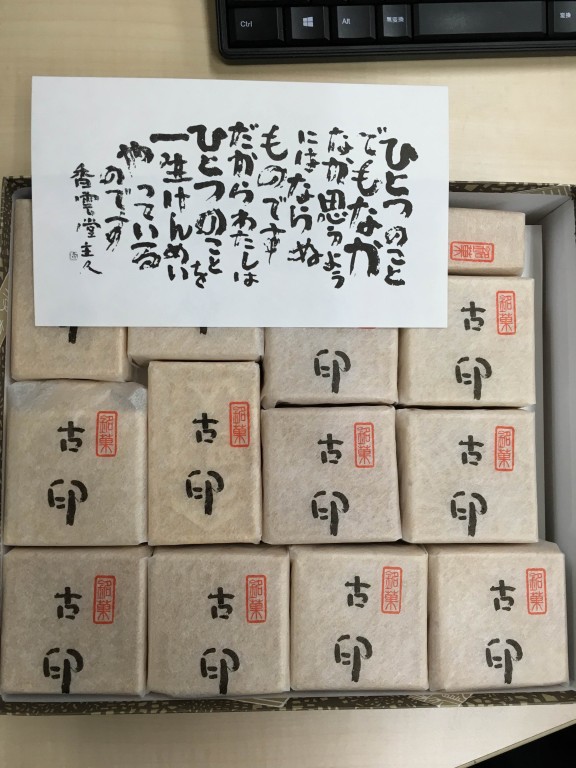 Ctrl
Alt
無変換
変換
ひとつのこと
でもなか
なか思うよう
にはならぬ
ものです
だからわたしは
ひとつのことを
一生けんめい
やっている
のです
香雲堂主人
銘菓
印
銘菓
古印
銘菓
古印
銘菓
古印
銘菓
古印
銘菓
古印
銘菓
古印
銘菓
古印
銘菓
古印
銘菓
古印